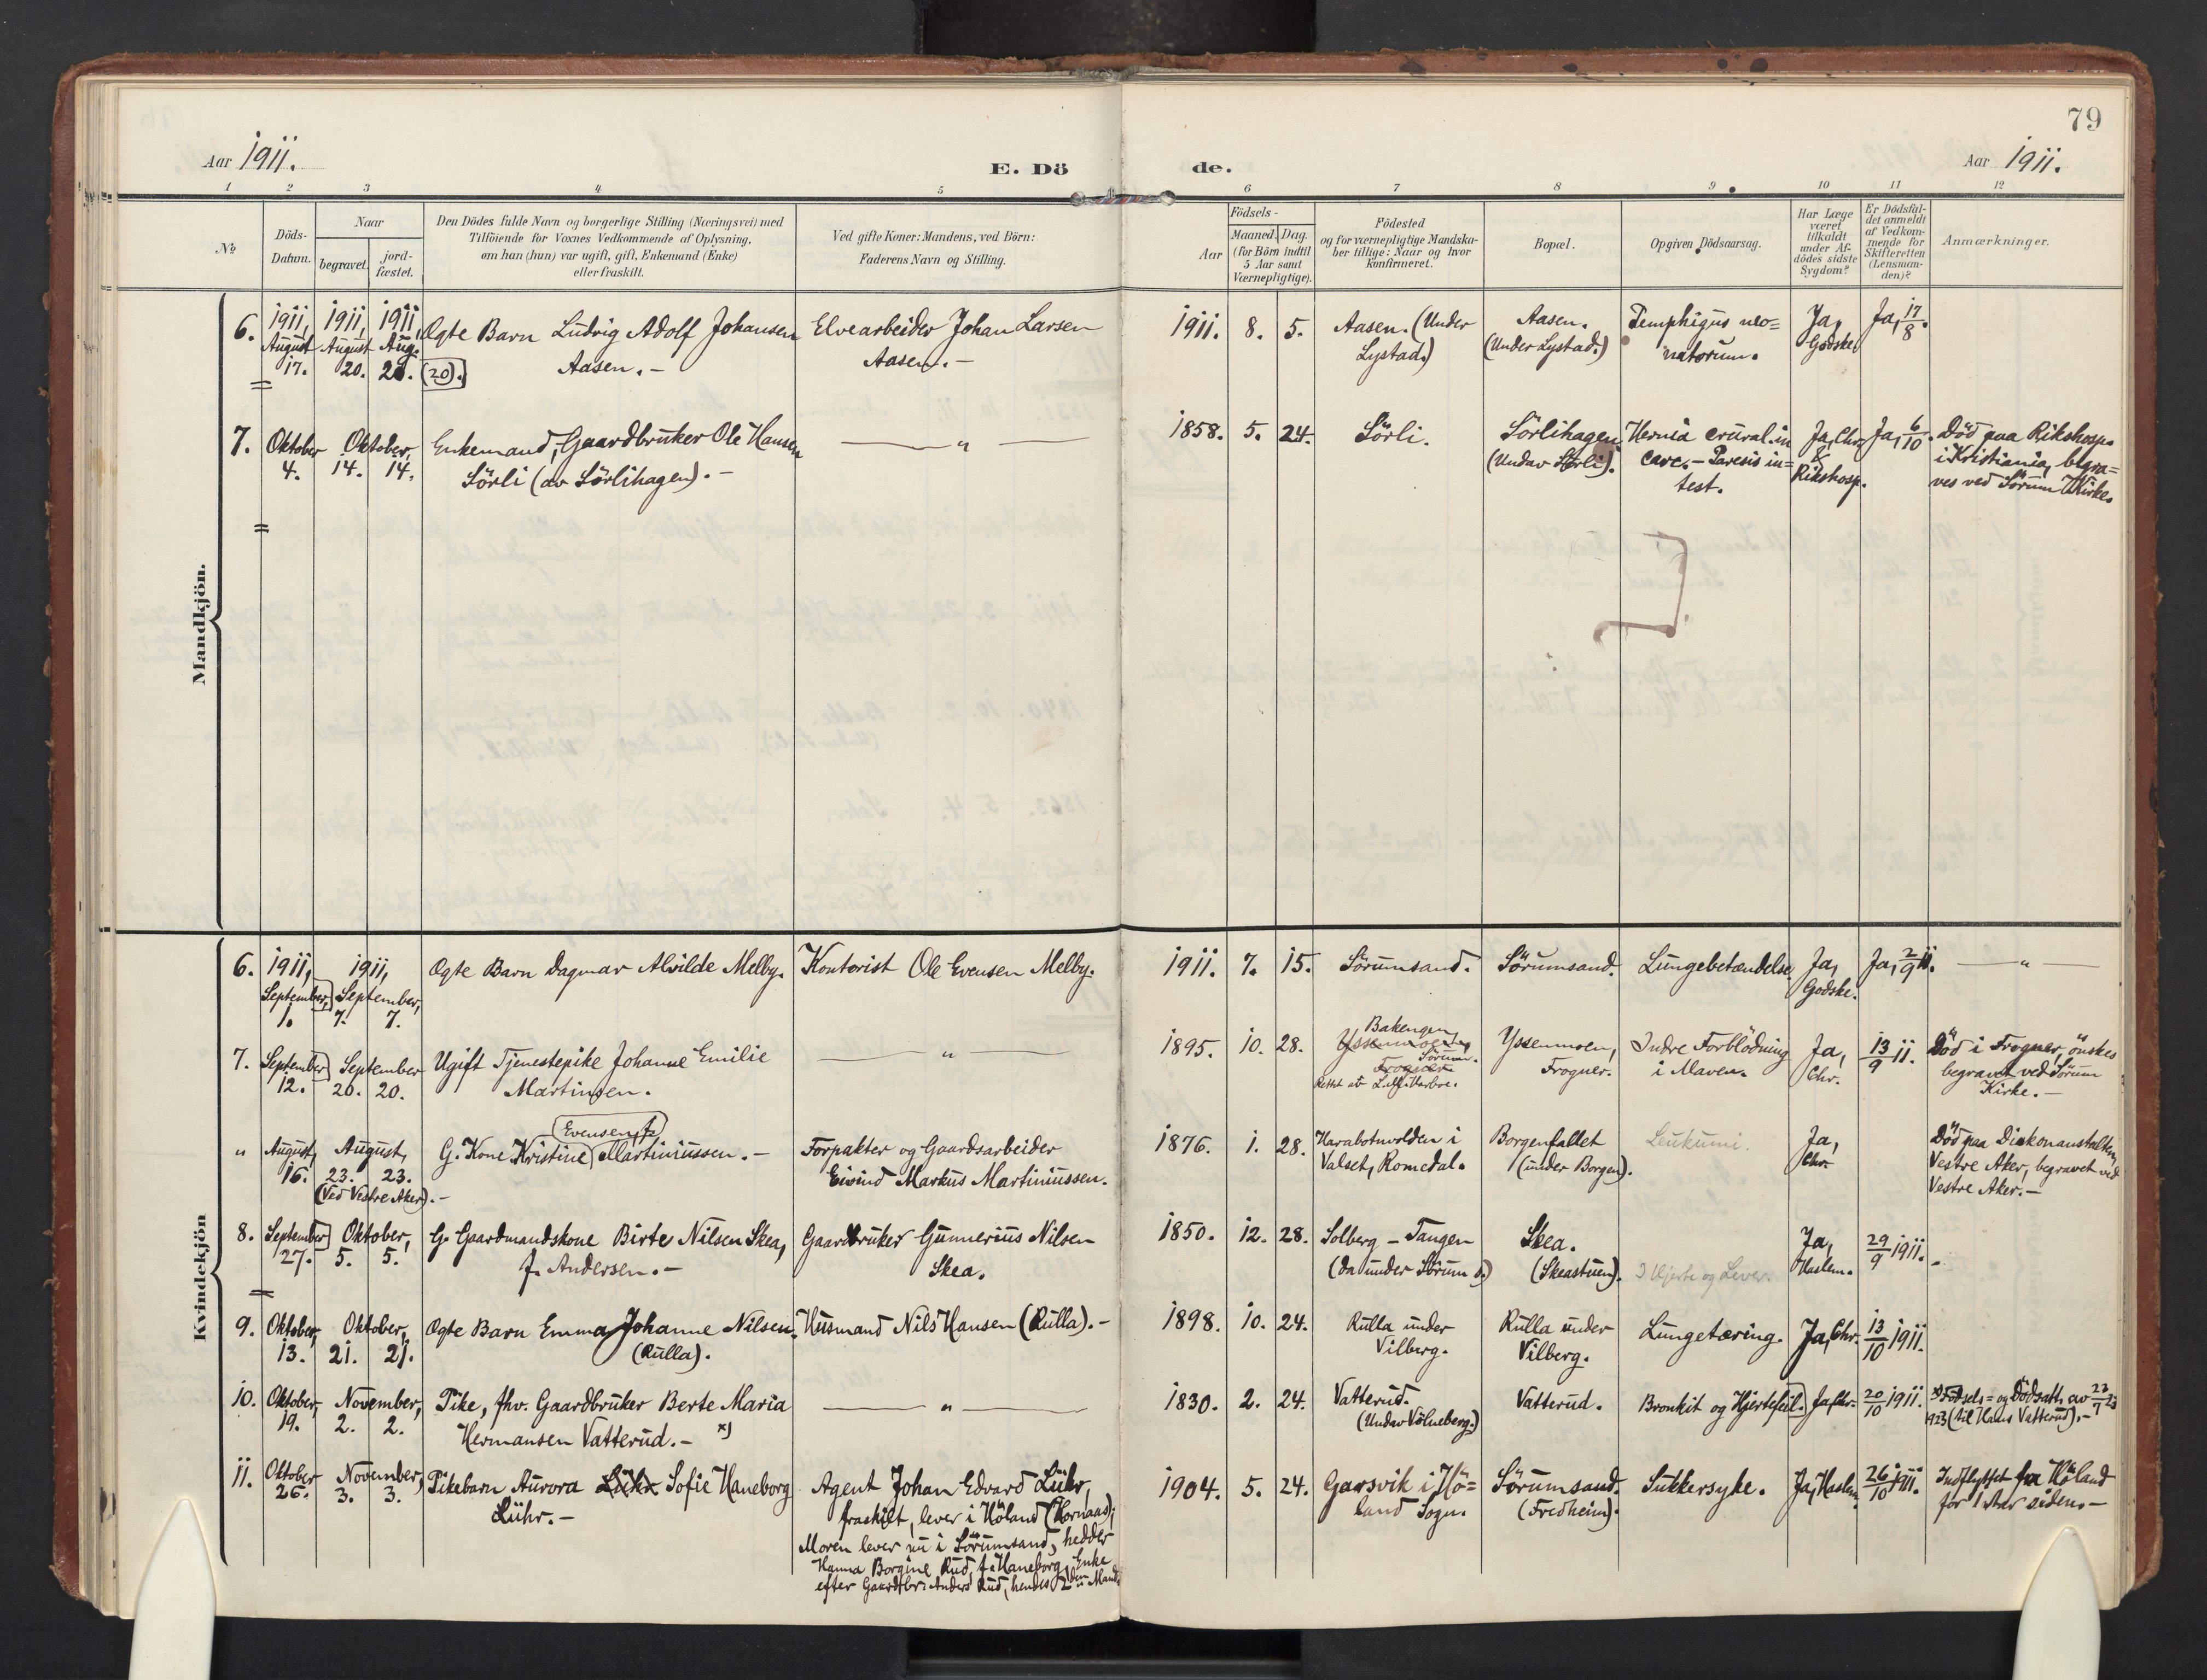 79
Aar 1911.
E. Dö
de.
Aar 1911.
1 2 3 4 5 6 7 8 9 10 11 12
№
Döds-
Datum.
Naar
begravet.
jord-
fæstet.
Den Dödes fulde Navn og borgerlige Stilling (Næringsvei) med
Tilföiende for Voxnes Vedkommende af Oplysning,
om han (hun) var ugift, gift, Enkemand (Enke)
eller fraskilt.
Ved gifte Koner: Mandens, ved Börn:
Faderens Navn og Stilling.
Födsels-
Aar
Maaned. Dag.
(for Börn indtil
5 Aar samt
Værnepligtige).
Födested
og for værnepligtige Mandska-
ber tillige: Naar og hvor
konfirmeret.
Bopæl.
Opgiven Dödsaarsag.
Har Læge
været
tilkaldt
under Af-
dödes sidste
Sygdom?
Er Dödsfal-
det anmeldt
af Vedkom-
mende for
Skifteretten
(Lensman-
den)?
Anmærkninger.
Mandkjön.
6.
1911, August 17.
1911, August 20.
1911, Aug. 20.
(20).
Ægte Barn Ludvig Adolf Johansen
Aasen. –
Elvearbeider Johan Larsen
Aasen. –
1911. 8. 5.
Aasen. (Under
Lystad.)
Aasen.
(Under Lystad.)
Pemphigus neo=
natorum.
Ja,
Godske.
Ja, 17/8.
7.
Oktober 4.
Oktober, 14. 14.
Enkemand, Gaardbruker Ole Hansen
Sörli (av Sörlihagen). –
— " —
1858. 5. 24.
Sörli.
Sörlihagen
(Under Sörli).
Hernia crural. in
carc. – Paresis in=
test.
Ja, Chr.
&
Rikshosp.
Ja, 6/10.
Död paa Rikshosp.
i Kristiania, begra=
ves ved Sörum Kirke.
Kvindekjön
6.
1911, September, 1.
1911, September, 7. 7.
Ægte Barn Dagmar Alvilde Melby.
Kontorist Ole Evensen Melby.
1911. 7. 15.
Sörumsand.
Sörumsand.
Lungebetændelse.
Ja,
Godske.
Ja, 2/9 11.
— " —
7.
September 12.
September 20. 20.
Ugift Tjenestepike Johanne Emilie
Martinsen.
— " —
1895. 10. 28.
Bakengen,
Yssenmoen,
Sörum.
Frogner.
Yssenmoen,
Frogner.
Indre Forblödning
i Maven.
Ja,
Chr.
13/9 11.
Död i Frogner, önskes
begravet ved Sörum
Kirke. –
"
August, 16.
August, 23. 23.
(Ved Vestre Aker). –
Evensen f.
G. Kone Kristine Martiniussen. –
Forpakter og Gaardsarbeider
Eivind Markus Martiniussen.
1876. 1. 28.
Harabotnvolden i
Valset, Romedal.
Borgenfallet
(under Borgen).
Leukumi.
Ja,
Chr.
Död paa Diakonanstalten
Vestre Aker, begravet ved
Vestre Aker. –
8.
September 27.
Oktober, 5. 5.
G. Gaardmandskone Birte Nilsen Skea,
f. Andersen. –
Gaardbruker Gunnerius Nilsen
Skea.
1850. 12. 28.
Solberg – Tangen
(da under Sörum s.)
Skea.
(Skeastuen).
I Hjerte og Lever.
Ja,
Haslem.
29/9 1911.
9.
Oktober, 13.
Oktober, 21. 21.
Ægte Barn Emma Johanne Nilsen.
(Rulla).
Husmand Nils Hansen (Rulla). –
1898. 10. 24.
Rulla under
Vilberg.
Rulla under
Vilberg.
Lungetæring.
Ja, Chr.
13/10 1911.
10.
Oktober, 19.
November, 2. 2.
Pike, fhv. Gaardbruker Berte Maria
Hermansen Vatterud. – x)
— " —
1830. 2. 24.
Vatterud.
(Under Völneberg.)
Vatterud.
Bronkit og Hjertefeil.
Ja, Chr.
20/10 1911.
x) Födsels= og Dödsatt. av 23/7 23
1923 (til Hans Vatterud). –
11.
Oktober 26.
November, 3. 3.
Pikebarn Aurora Lühr Sofie Haneborg
Lühr. –
Agent Johan Edvard Lühr,
fraskilt, lever i Höland (Hornaas);
Moren lever nu i Sörumsand, hedder
Hanna Borgine Rud, f. Haneborg, Enke
efter Gaardbr. Anders Rud, hendes 2den Mand.
1904. 5. 24.
Garsvik i Hö=
land Sogn.
Sörumsand.
(Fredheim).
Sukkersyke.
Ja, Haslem.
26/10 1911.
Indflyttet fra Höland
for 1 Aar siden. –